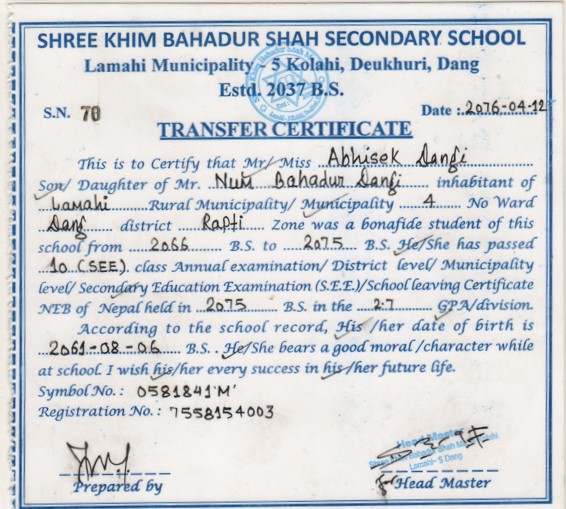 SHREE KHIM BAHADUR SHAH SECONDARY SCHOOL
Lamahi Municipality 5 Kolahi, Deukhuri, Dang
Estd. 2037 B.S.
S.N. 70 Date :.2076-04-12
TRANSFER CERTIFICATE
This is to Certify that Mr/ Miss Abhisek Dangi
Son/ Daughter of Mr. Num Bahadur Dangi inhabitant of
Lamahi Rural Municipality/ Municipality 4 No Ward
Dang district Rapti Zone was a bonafide student of this
school from 2066 B.S. to 2075 B.S. He/She has passed
10 (SEE) class Annual examination/ District level/ Municipality
level/ Secondary Education Examination (S.E.E)/School leaving Certificate
NEB of Nepal held in 2075 B.S. in the 2.7 GPA/division.
According to the school record, His /her date of birth is
2061-08-06 B.S. . He/She bears a good moral /character while
at school. I wish his/her every success in his/her future life.
Symbol No. : 0581841'M'
Registration No. : 7558154003
Head Master
Shree Khim Bahadur Shah
Lamahi- 5 Dang
Prepared by
For Head Master